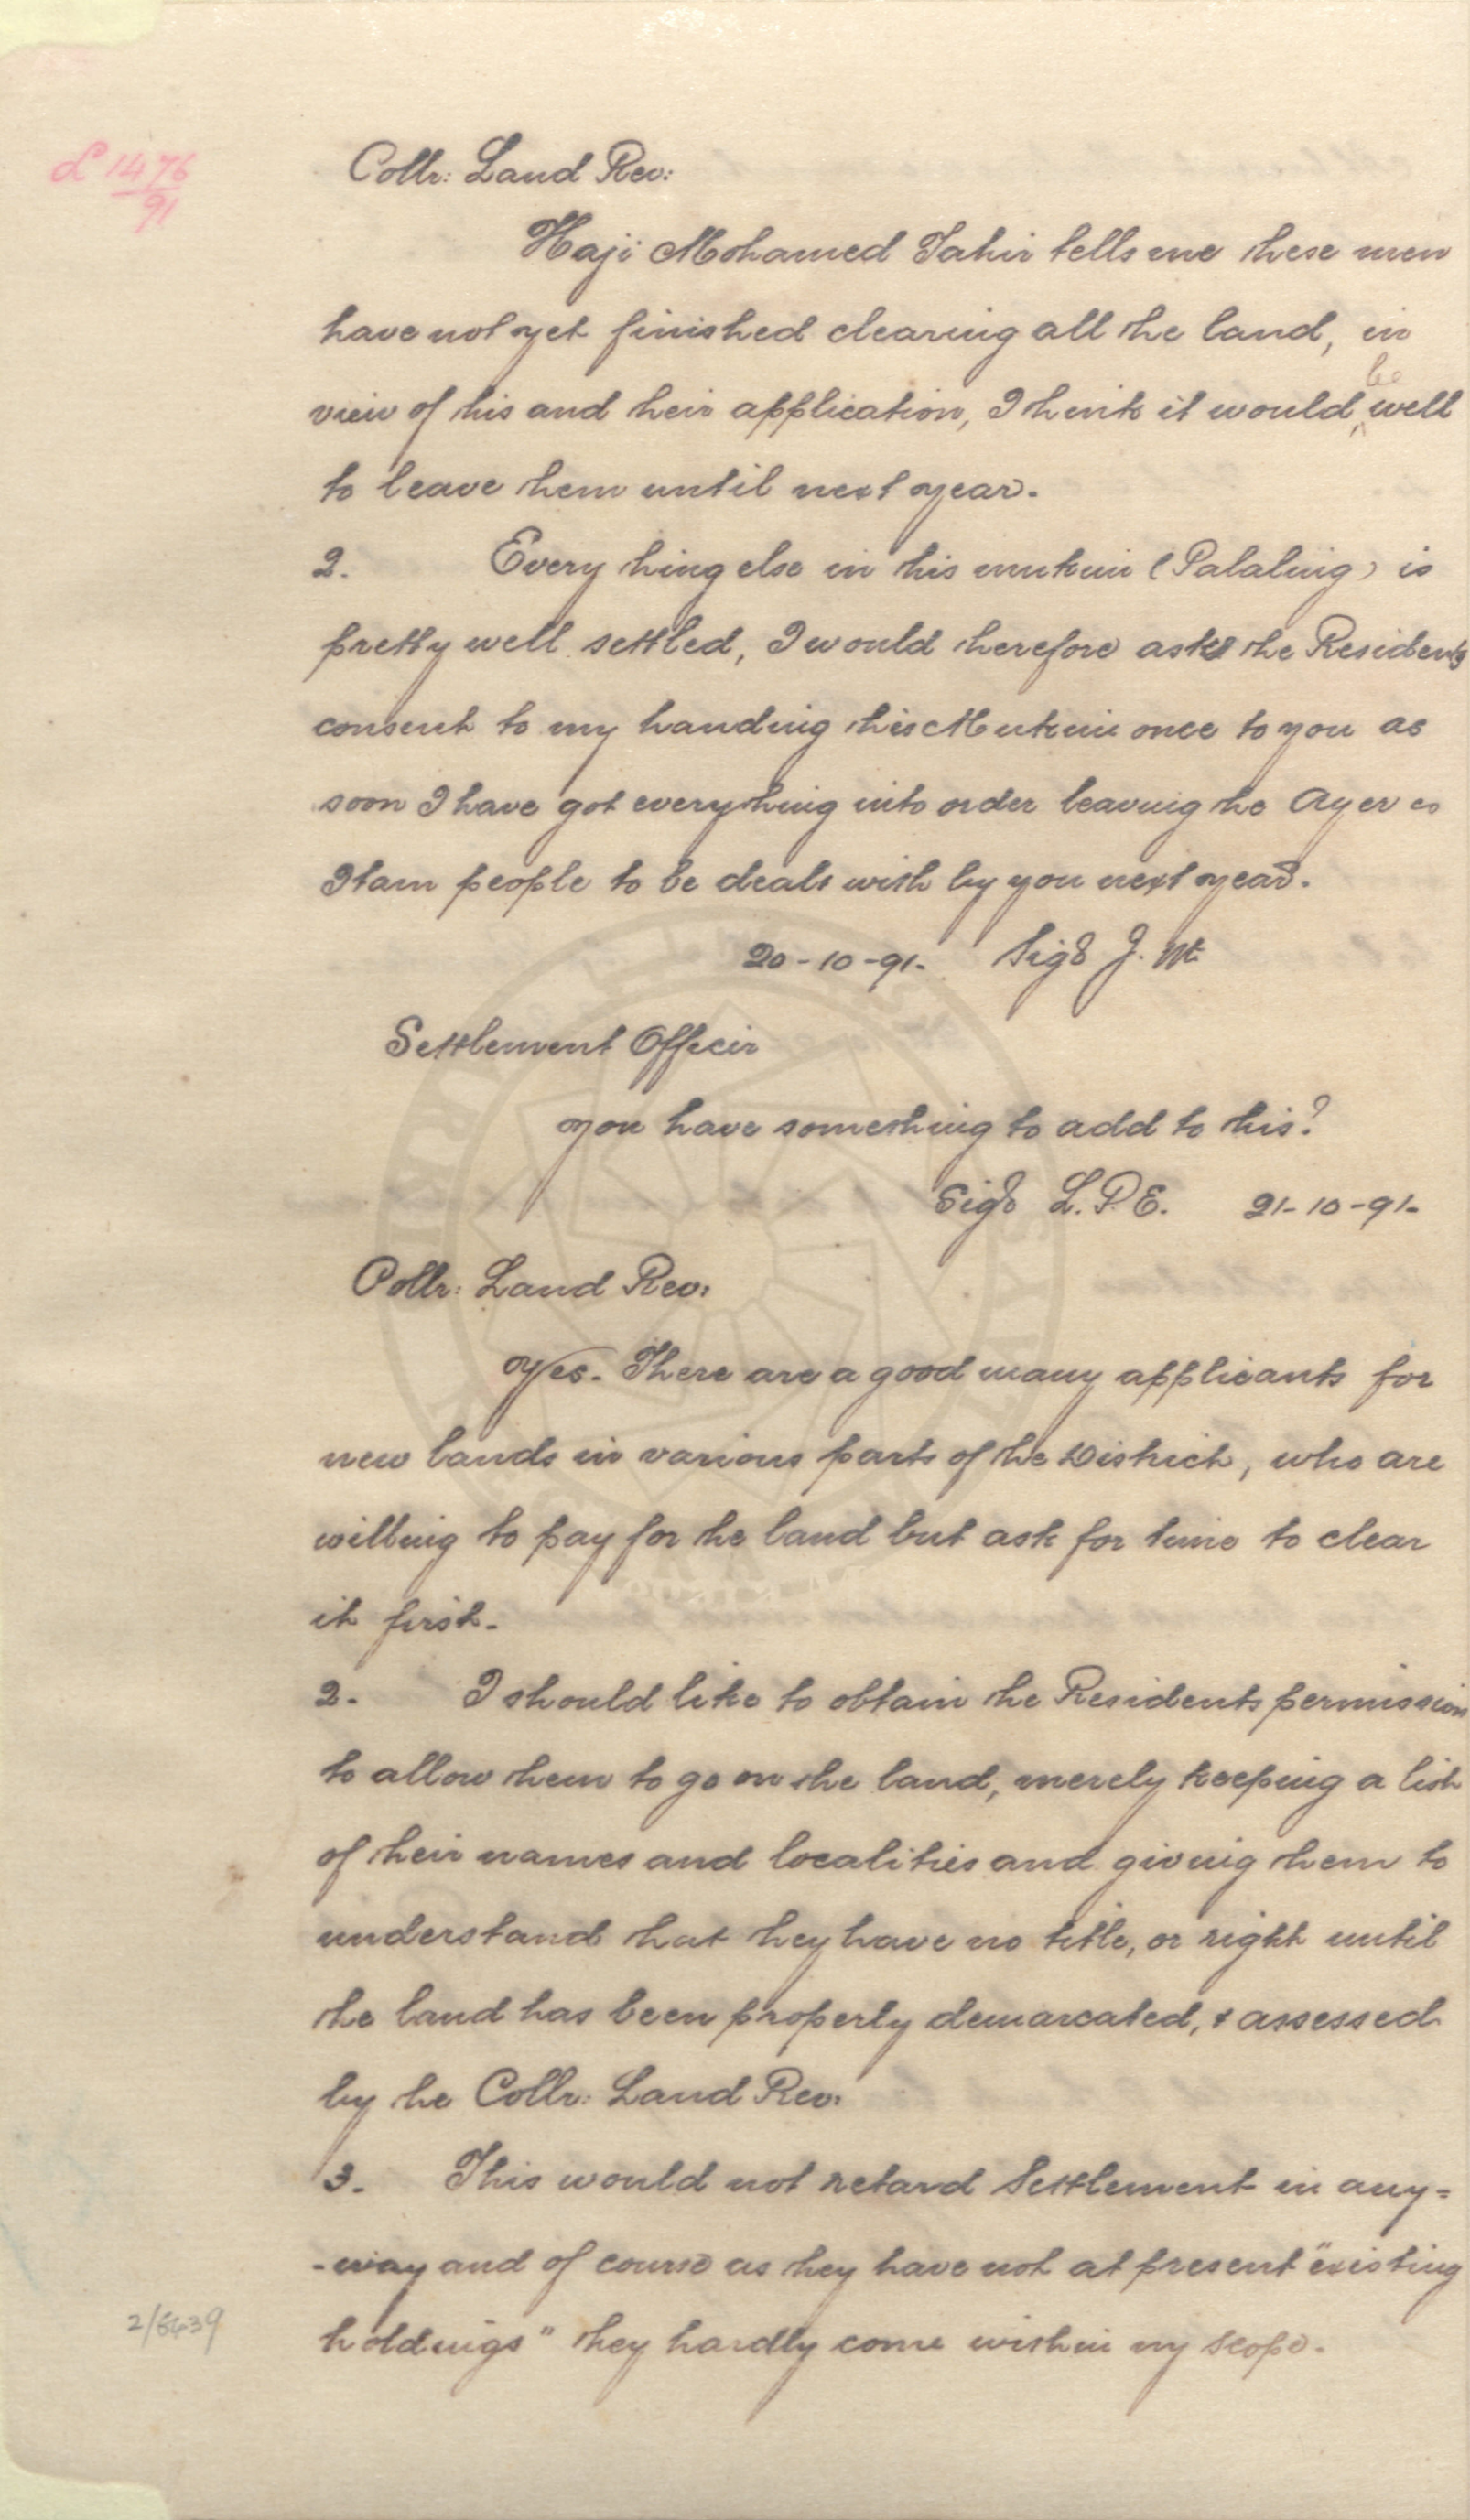 L 1476
91
Collr: Land Rev:
Haji Mohamed Tahir tells me these men
have not yet finished clearing all the land, in
view of this and their application, I think it would be well
to leave them until next year.
2. Every thing else in this mukim (Palaling) is
pretty well settled, I would therefore ask the Residents
consent to my handing this Mukim once to you as
soon I have got everything into order leaving the Ayer
Itam people to be dealt with by you next year.
20-10-91. Sigd J. W.
Settlement Officer
You have something to add to this?
Sigd L.P.E. 21-10-91-
Collr: Land Rev:
Yes. There are a good many applicants for
new lands in various parts of the District, who are
willing to pay for the land but ask for time to clear
it first.
2. I should like to obtain the Residents permission
to allow them to go on the land, merely keeping a list
of their names and localities and giving them to
understand that they have no title, or right until
the land has been properly demarcated, & assessed
by the Collr: Land Rev:
3. This would not retard Settlement in any=
-way and of course as they have not at present "existing
holdings" they hardly come within my scope.
2/5439